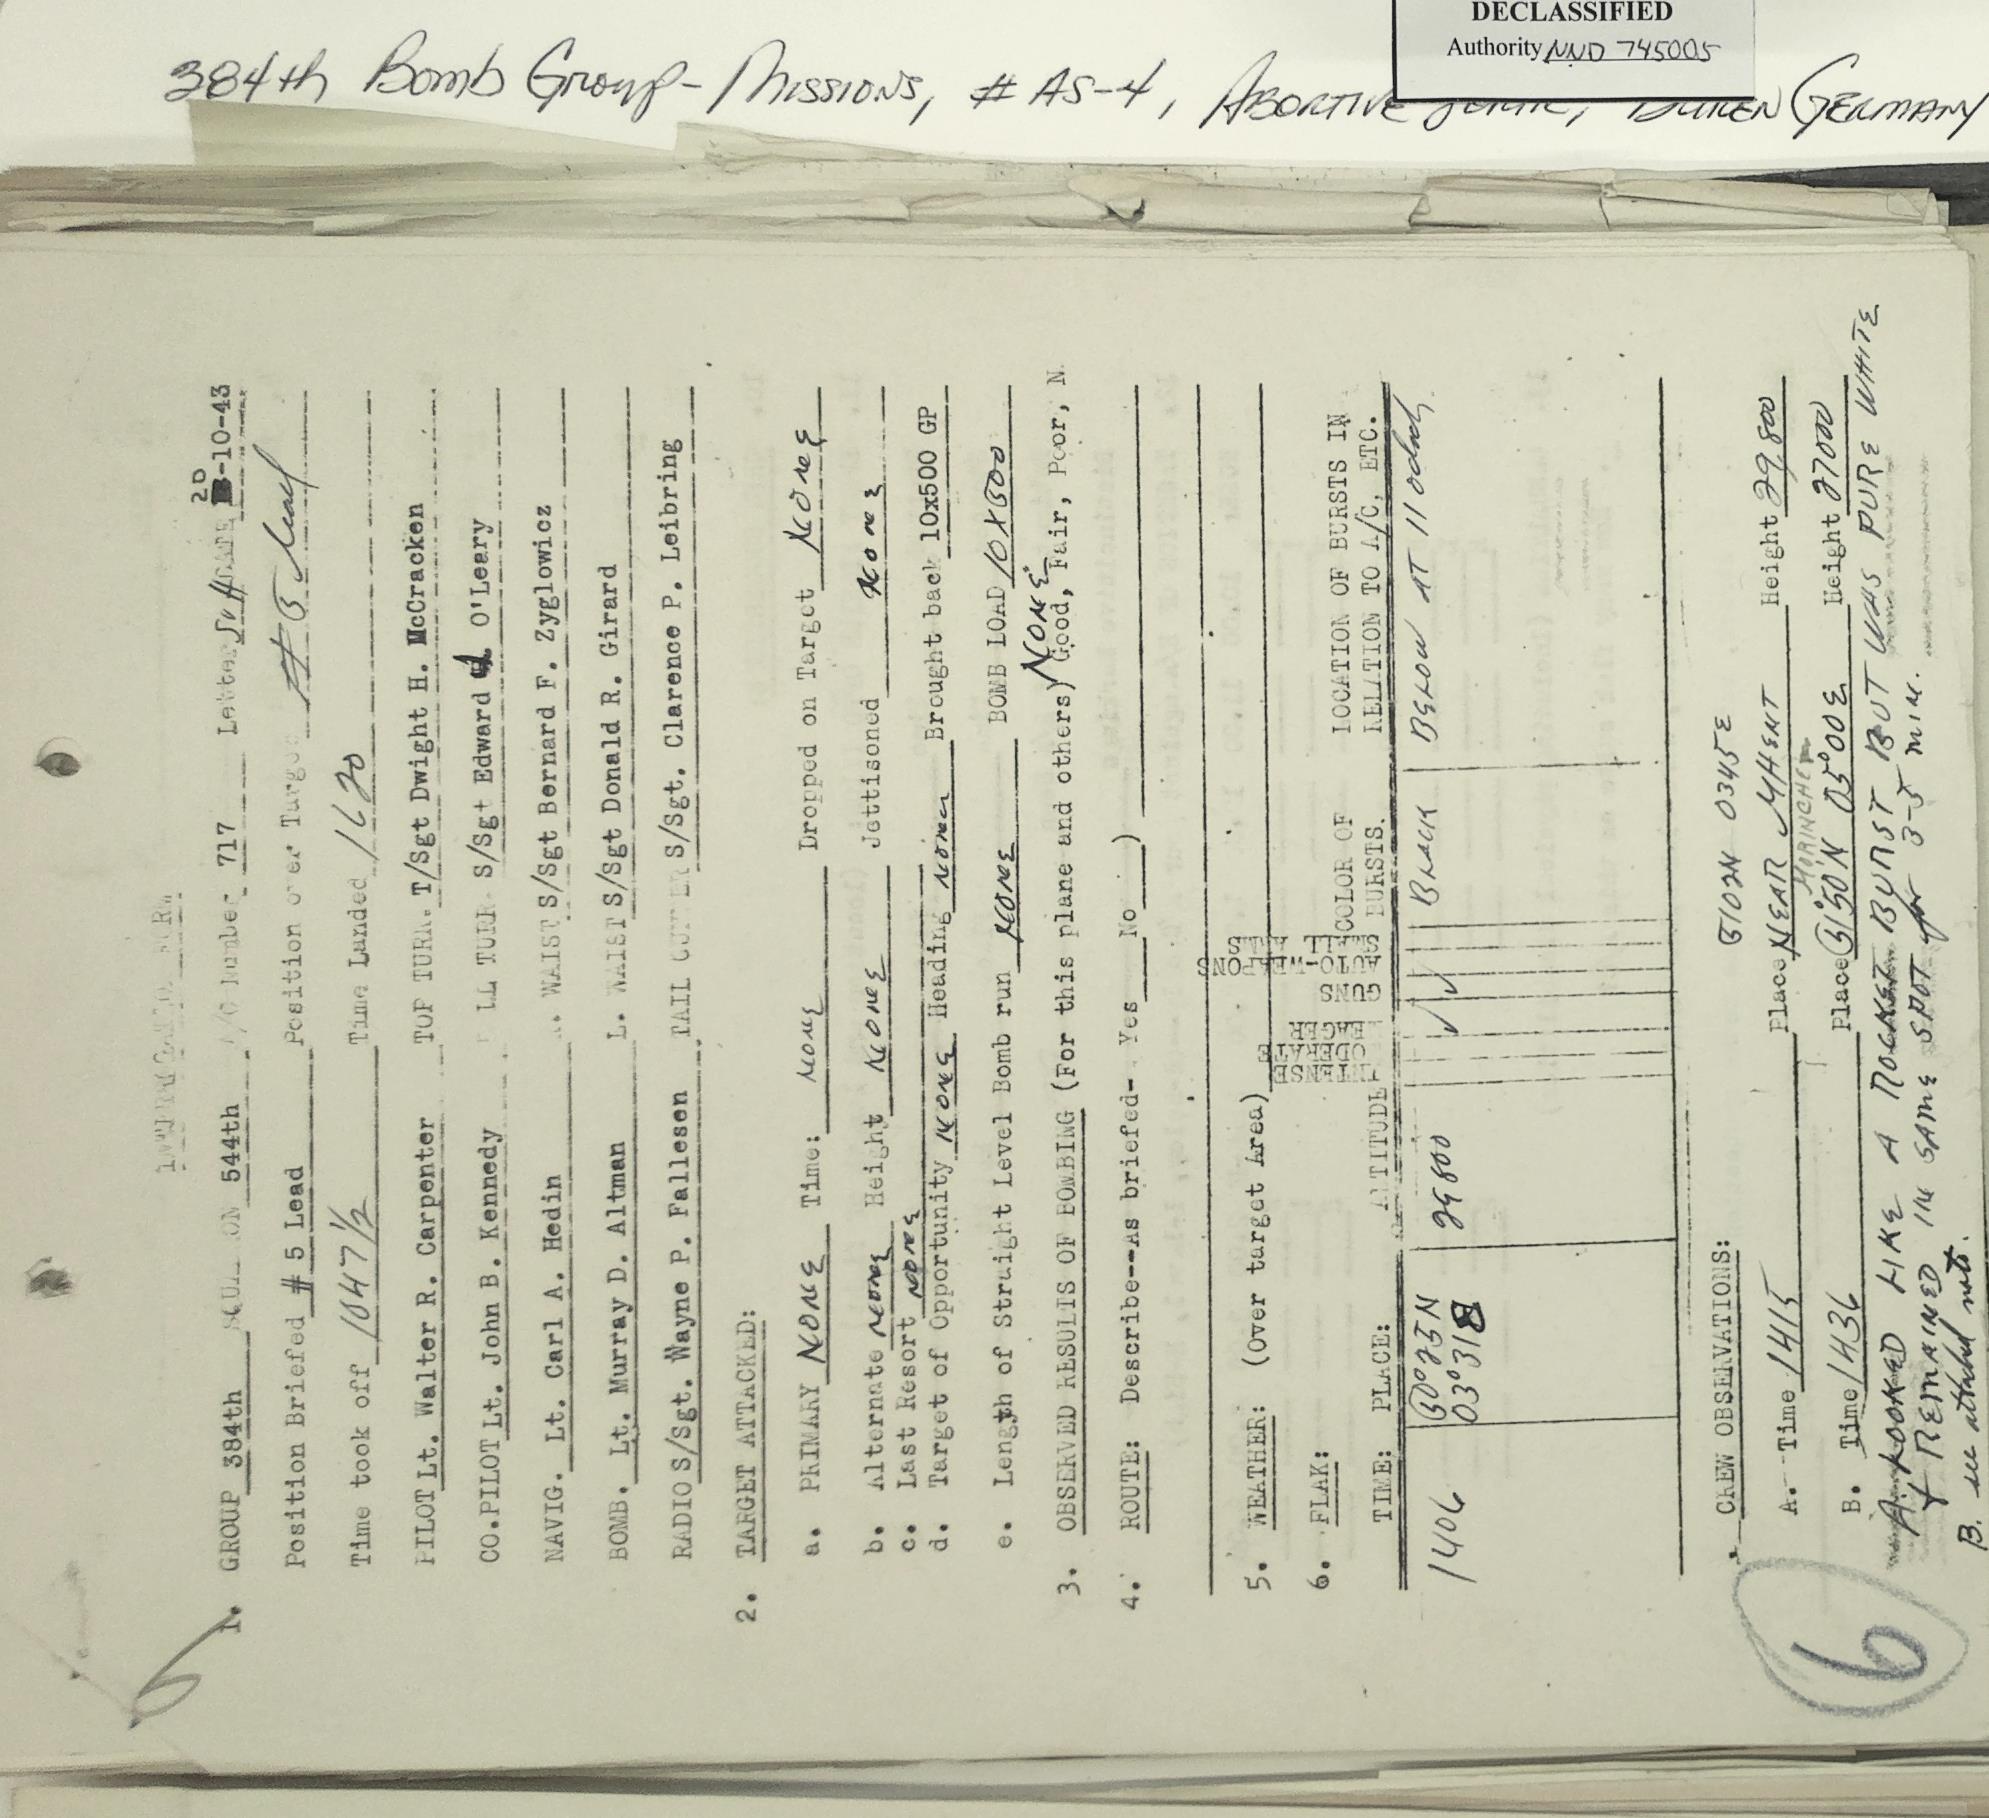 DECLASSIFIED
Authority NND 745005
384th Bomb Group - Missions, # AS-4, Abortive Germany
6
1. GROUP 384th 544th A/C Number 717 Letter 20-10-43
Position Briefed # 5 Lead Position over Target # 5 Lead
Time took off 1047 1/2 Time Landed 1620
PILOT Lt. Walter R. Carpenter TOP TURR. T/Sgt Dwight H. McCracken
CO.PILOT Lt. John B. Kennedy LL TURR. S/Sgt Edward O'Leary
NAVIG. Lt. Carl A. Hedin . WAIST S/Sgt Bernard F. Zyglowicz
BOMB. Lt. Murray D. Altman L. WAIST S/Sgt Donald R. Girard
RADIO S/Sgt. Wayne P. Fallesen TAIL GUNNER S/Sgt. Clarence P. Leibring
2. TARGET ATTACKED:
a. PRIMARY NONE Time: NONE Dropped on Target NONE
b. Alternate NONE Height NONE Jettisoned NONE
c. Last Resort NONE
d. Target of Opportunity NONE Heading NONE Brought back 10x500 GP
e. Length of Straight Level Bomb run NONE BOMB LOAD 10X500
NONE
3. OBSERVED RESULTS OF BOMBING (For this plane and others) Good, Fair, Poor, N
4. ROUTE: Describe--As briefed- Yes No )
5. WEATHER: (Over target Area)
6. FLAK:
TIME: PLACE: ALTITUDE INTENSE MODERATE MEAGER GUNS AUTO-WEAPONS SMALL ARMS COLOR OF BURSTS. LOCATION OF BURSTS IN RELATION TO A/C, ETC.
1406 50°25N 29800 ✓ ✓ BLACK BELOW AT 11 oclock
03°31E
CREW OBSERVATIONS:
5102N 0345E
A. Time 1415 Place NEAR Height 29,800
B. Time 1436 Place 5150N 05°00E Height 27000
A. LOOKED LIKE A ROCKET BURST BUT WAS PURE WHITE
+ REMAINED IN SAME SPOT for 3-5 MIN.
B. see attached note.
6